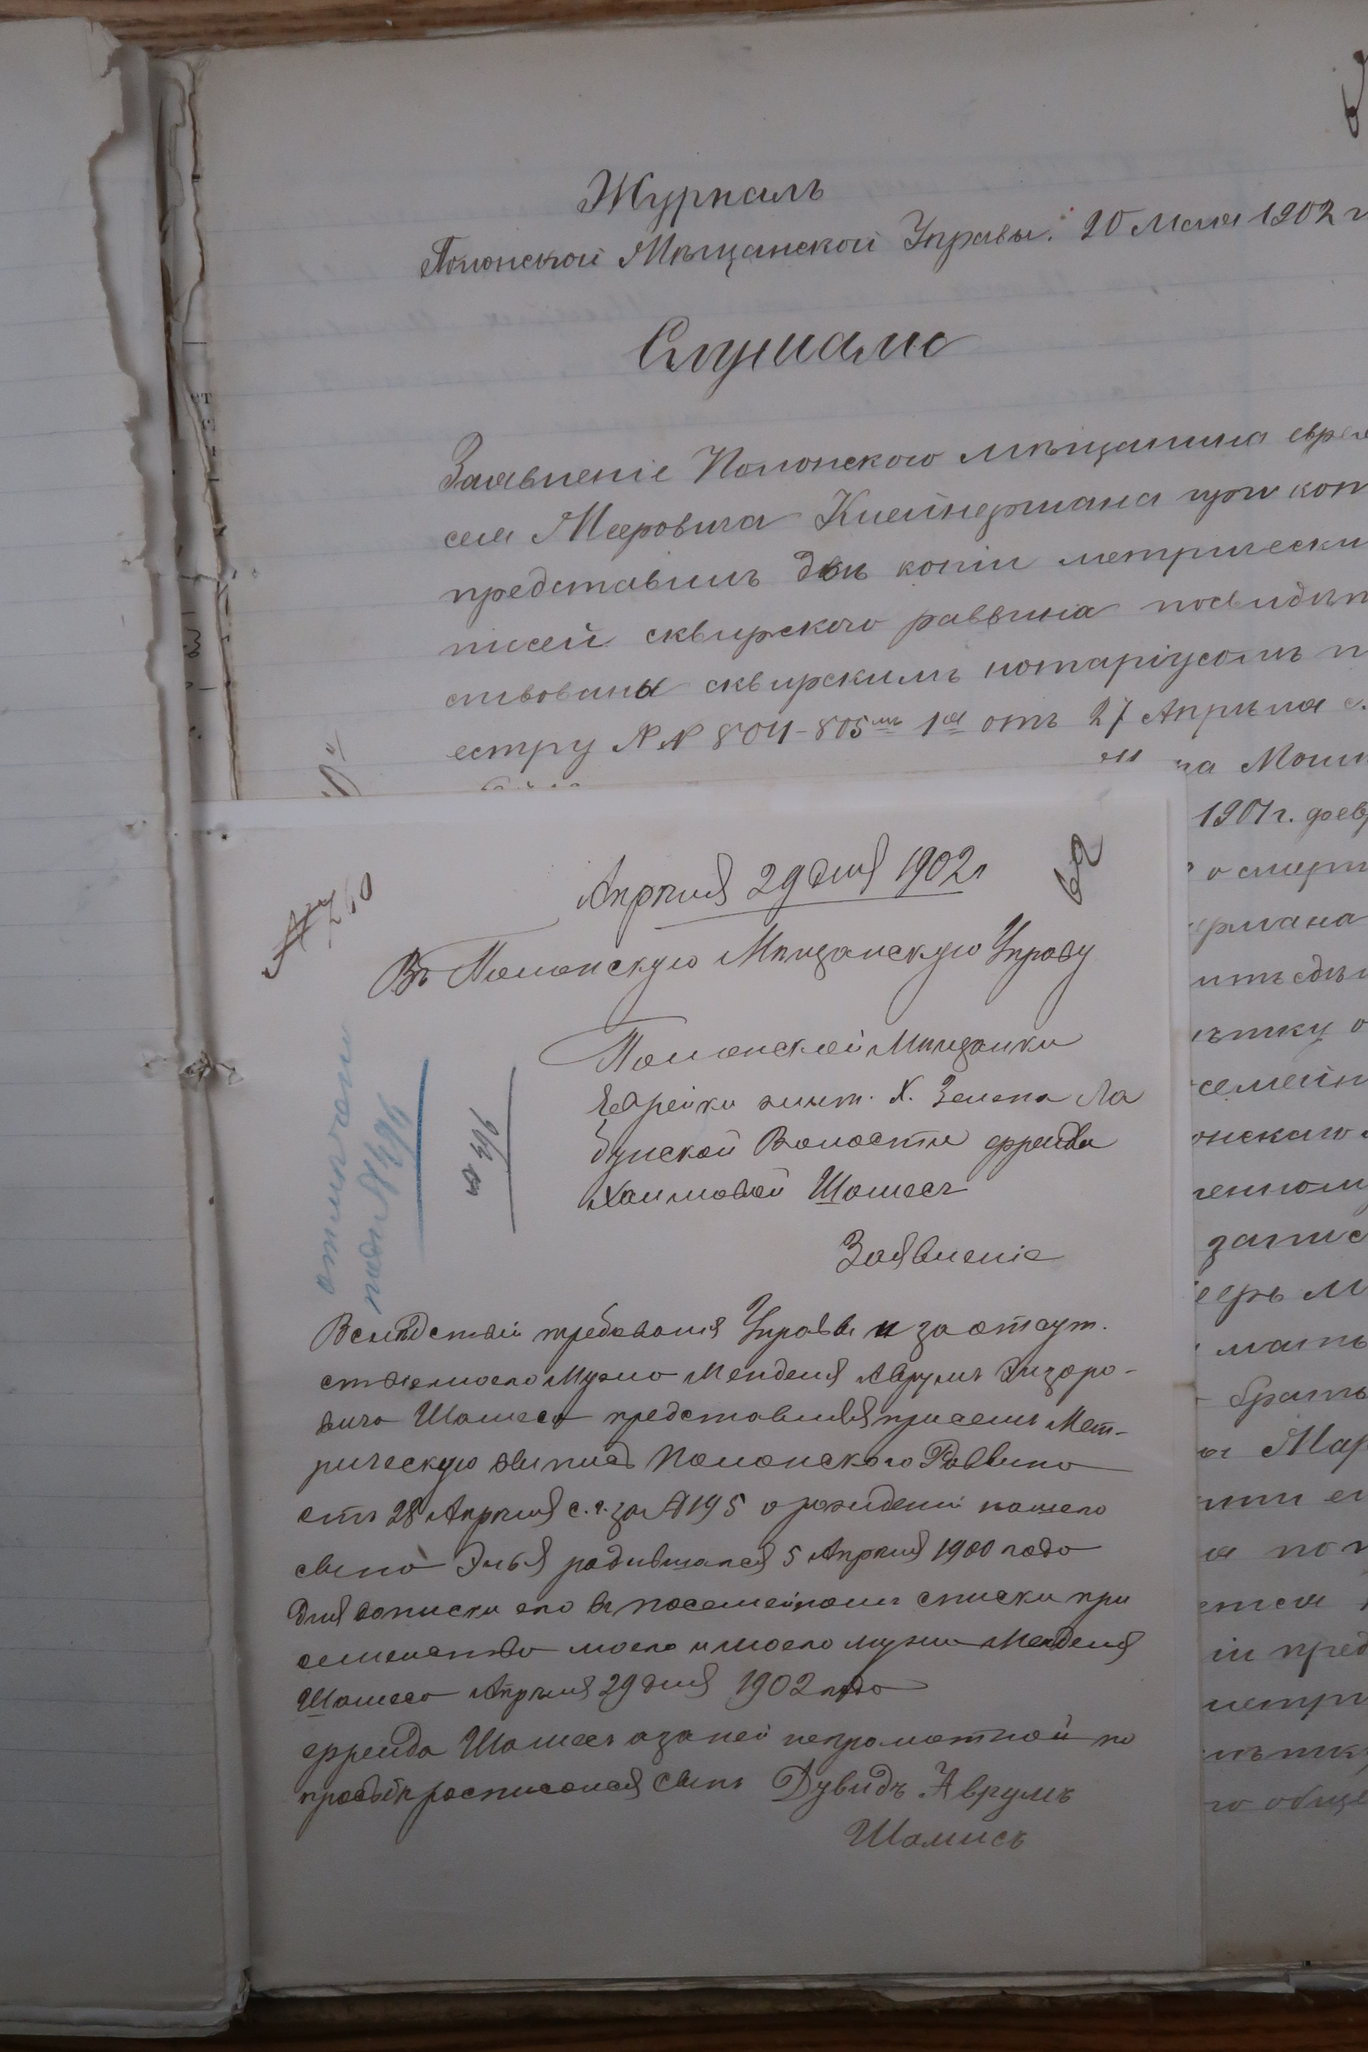 Журналъ
Полонской Мѣщанской Управы. 20 Мая 1902 г
Слушали
Заявленіе Полонскаго мѣщанина еврея
сея Мееровича Клейнермана при кот
представилъ двѣ копіи метрически
писей сквирскаго раввина посвидѣт
ствованы сквирскимъ нотаріусомъ п
естру № № 804-805 мъ 1й отъ 27 Апрѣля с.
на Мош
1901 г. фев
о смерт
ермана
ить сдѣл
ѣтку о
семейн
онскаго
ченном
запис
ееръ М
мать
братъ
ы Мар
ити ег
а по
ется
іи пред
метри
мѣтк
го обще
62
Апрѣля 29 дня 1902 г
№ 260
Въ Полонскую Мѣщанскую Управу
Полонской Мѣщанки
Еврейки жит. х. Зелена Ла
бунской Волости Фрейда
Хаимовой Шамесъ
отмѣчено
подъ № 496
№ 496
Заявленіе
Вслѣдствій требованія Управы и за отсут.
ствіемъ моего Мужа Менделя Аврумъ Эизоро-
вича Шамеса представляя при семъ Мет-
рическую выпись Полонского Раввина
отъ 28 Апрѣля с. г. за № 195 о рожденій нашего
сына Элья родившагося 5 Апрѣля 1900 года
для вописки его въ посемейномъ списки при
семействѣ моего и моего мужа Менделя
Шамеса Апрѣля 29 дня 1902 года
Фрейда Шамесъ а за ней неграмотной по
просьбѣ росписался сынъ Дувидъ Аврумъ
Шамисъ